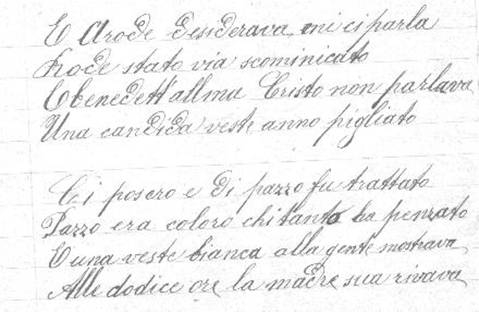 E Arode desiderava mi ci parla
Erode stato via scominicato
E benedett'allmu Cristo non parlava
Una candida veste anno pigliato
Ci posero e di pazzo fu trattato
Pazzo era coloro chi tanto ha penzato
E una veste bianca alla gente mostrava
Alle dodice ore la madre sua rivava